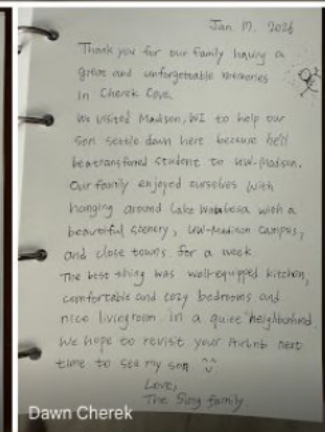 Jan. 17. 2026
Thank you for our family having a
great and unforgettable memories
in Cherek Cove.
We visited Madison, WI to help our
son settle down here because he'll
be a transfered student to UW-Madison.
Our family enjoyed ourselves with
hanging around Lake Waubesa with a
beautiful scenery, UW-Madison campus,
and close towns for a week.
The best thing was well-equipped kitchen,
comfortable and cozy bedrooms and
nice livingroom in a quiet neighborhood.
We hope to revisit your Airbnb next
time to see my son ^^
Love,
The Song family.
Dawn Cherek